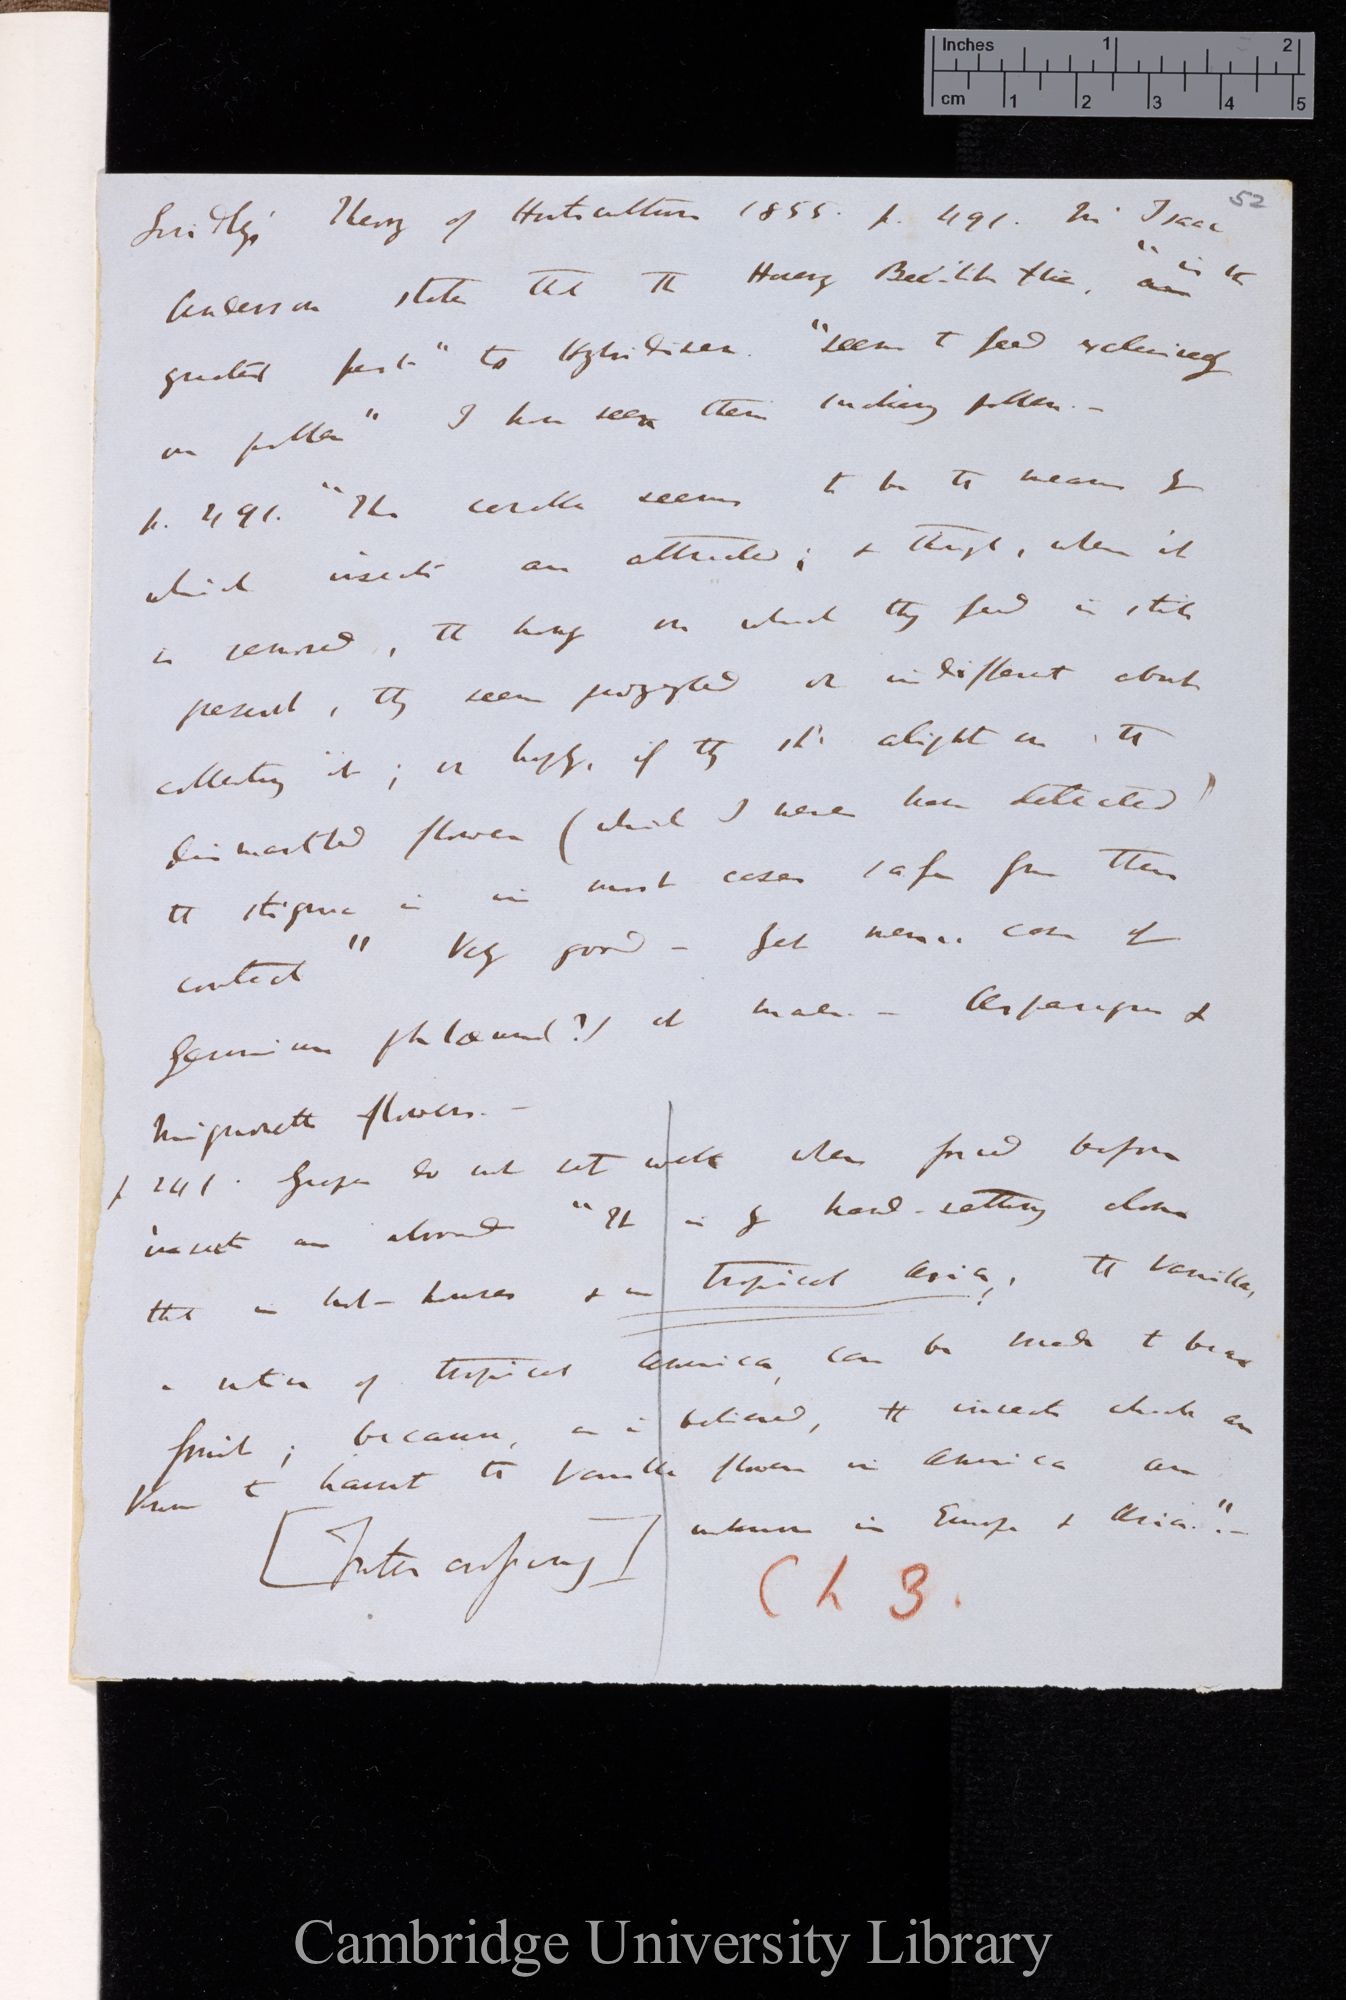 Inches 1 2
cm 1 2 3 4 5
52
Lindley's Theory of Horticulture 1855. p. 491. Mr Isaac
Anderson states that the Honey Bee-like flies, "are is the
greatest pest" to Hybridisers. "seem to feed exclusively
on pollen" I have seen them sucking pollen.—
p. 491. "The corolla seems to be the means by
which insects are attracted; & though, when it
is removed, the honey on which they feed is still
present, they seem puzzled or indifferent about
collecting it; or haply, if they shd. alight on the
dismantled flower (which I never have detected)
the stigma is in most cases safe from their
contact" Very good — Get case of
Geranium ?) at — Asparagus &
Mignonette flowers.—
p 241. Grapes do not set well when forced before
insects are abroad "It is by hand-setting alone
that in hot-houses & in tropical Asia, the Vanilla,
a native of tropical America, can be made to bear
fruit; because, as is believed, the insects which are
known to haunt the Vanilla flower in America are
unknown in Europe & Asia."—
[Inter crossing]
Ch 3.
Cambridge University Library